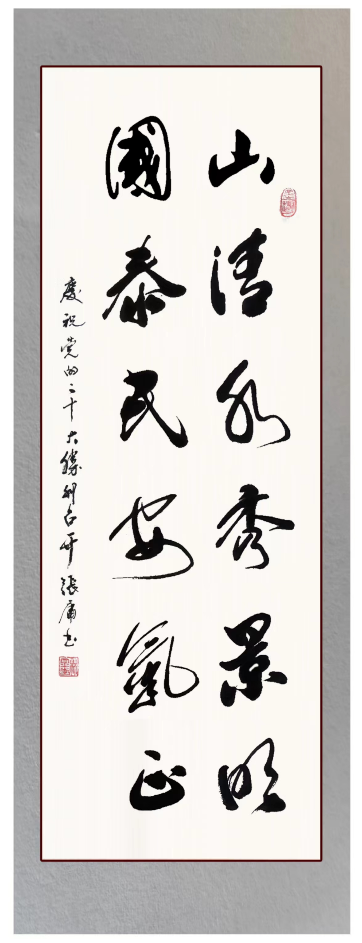 山清水秀景明
國泰民安氣正
慶祝党的二十大勝利召开 張庸书